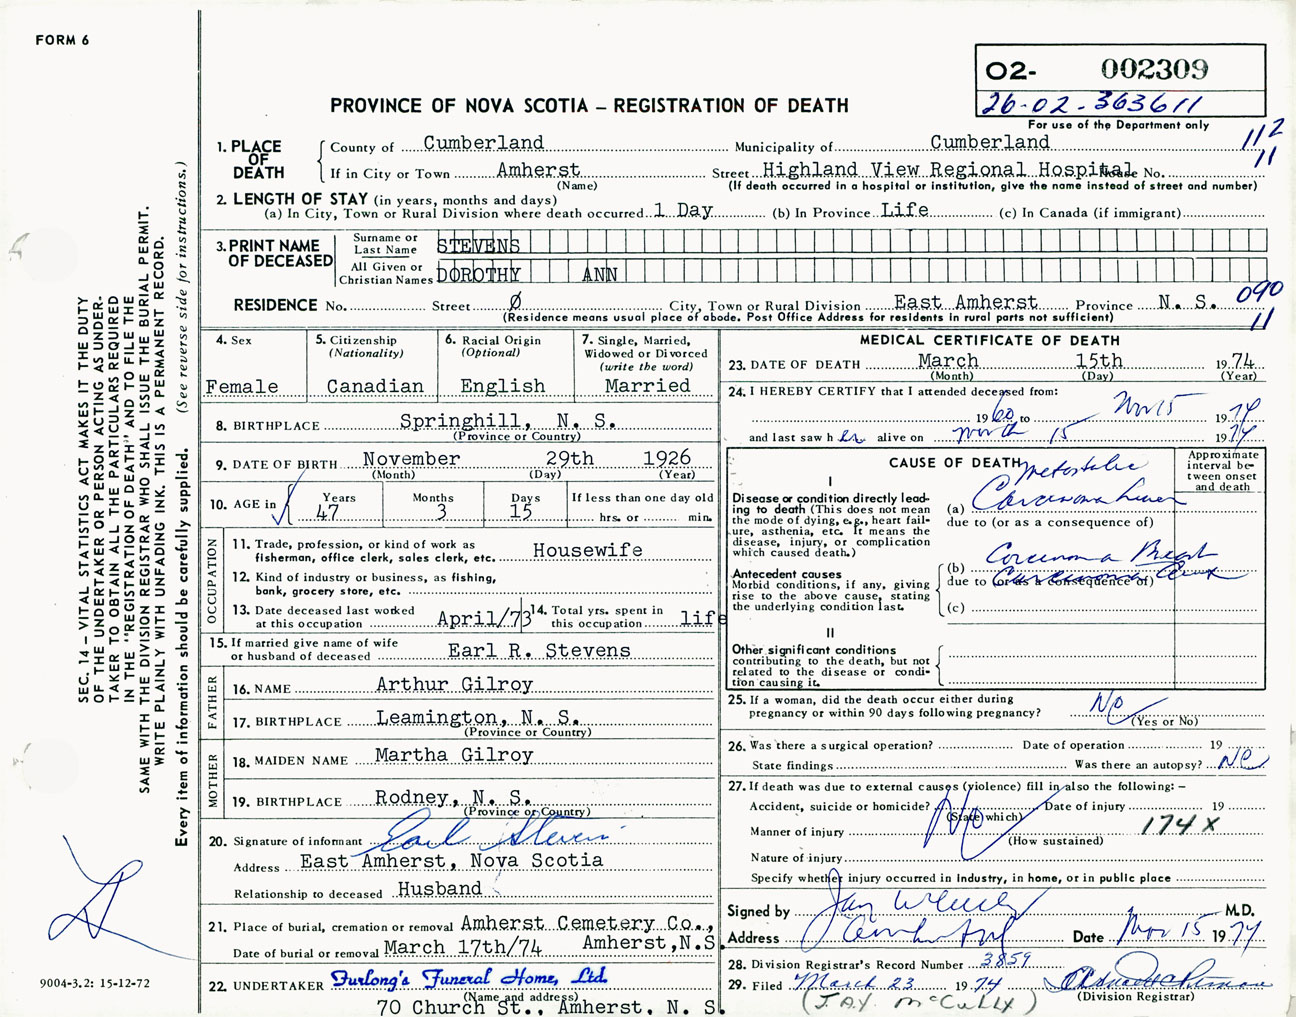 FORM 6
O2- 002309
26-02-363611
For use of the Department only
PROVINCE OF NOVA SCOTIA – REGISTRATION OF DEATH
112
11
1. PLACE OF DEATH
County of Cumberland Municipality of Cumberland
If in City or Town Amherst Street Highland View Regional Hospital No.
(Name) (If death occurred in a hospital or institution, give the name instead of street and number)
2. LENGTH OF STAY (in years, months and days)
(a) In City, Town or Rural Division where death occurred 1 Day (b) In Province Life (c) In Canada (if immigrant)
3. PRINT NAME OF DECEASED
Surname or Last Name STEVENS
All Given or Christian Names DOROTHY ANN
RESIDENCE No. Street Ø City, Town or Rural Division East Amherst Province N. S. 090
(Residence means usual place of abode. Post Office Address for residents in rural parts not sufficient) 11
4. Sex
Female
5. Citizenship
(Nationality)
Canadian
6. Racial Origin
(Optional)
English
7. Single, Married,
Widowed or Divorced
(write the word)
Married
8. BIRTHPLACE Springhill, N. S.
(Province or Country)
9. DATE OF BIRTH November 29th 1926
(Month) (Day) (Year)
10. AGE in Years Months Days If less than one day old
47 3 15 hrs. or min.
OCCUPATION
11. Trade, profession, or kind of work as
fisherman, office clerk, sales clerk, etc. Housewife
12. Kind of industry or business, as fishing,
bank, grocery store, etc.
13. Date deceased last worked
at this occupation April/73
14. Total yrs. spent in
this occupation life
15. If married give name of wife
or husband of deceased Earl R. Stevens
FATHER
16. NAME Arthur Gilroy
17. BIRTHPLACE Leamington, N. S.
(Province or Country)
MOTHER
18. MAIDEN NAME Martha Gilroy
19. BIRTHPLACE Rodney, N. S.
(Province or Country)
20. Signature of informant Earl Stevens
Address East Amherst, Nova Scotia
Relationship to deceased Husband
21. Place of burial, cremation or removal Amherst Cemetery Co.,
Date of burial or removal March 17th/74 Amherst,N.S.
22. UNDERTAKER Furlong's Funeral Home, Ltd.
(Name and address)
70 Church St., Amherst, N. S.
MEDICAL CERTIFICATE OF DEATH
23. DATE OF DEATH March 15th 1974
(Month) (Day) (Year)
24. I HEREBY CERTIFY that I attended deceased from:
1960 to 15 1974
and last saw her alive on 15 1974
CAUSE OF DEATH
Approximate
interval be-
tween onset
and death
I
Disease or condition directly lead-
ing to death (This does not mean
the mode of dying, e.g., heart fail-
ure, asthenia, etc. It means the
disease, injury, or complication
which caused death.)
Metastatic
(a) Carcinoma Liver
due to (or as a consequence of)
Antecedent causes
Morbid conditions, if any, giving
rise to the above cause, stating
the underlying condition last.
(b) Carcinoma Breast
due to (or as a consequence of)
(c)
II
Other significant conditions
contributing to the death, but not
related to the disease or condi-
tion causing it.
25. If a woman, did the death occur either during
pregnancy or within 90 days following pregnancy? No
(Yes or No)
26. Was there a surgical operation? Date of operation 19
State findings Was there an autopsy? No
27. If death was due to external causes (violence) fill in also the following: –
Accident, suicide or homicide? No Date of injury 19
(State which)
Manner of injury 174 X
(How sustained)
Nature of injury
Specify whether injury occurred in Industry, in home, or in public place
Signed by M.D.
Address Date 15 1974
28. Division Registrar's Record Number 3859
29. Filed March 23 1974
(Division Registrar)
(J.A.Y. McCully)
SEC. 14 – VITAL STATISTICS ACT MAKES IT THE DUTY
OF THE UNDERTAKER OR PERSON ACTING AS UNDER-
TAKER TO OBTAIN ALL THE PARTICULARS REQUIRED
IN THE "REGISTRATION OF DEATH" AND TO FILE THE
SAME WITH THE DIVISION REGISTRAR WHO SHALL ISSUE THE BURIAL PERMIT.
WRITE PLAINLY WITH UNFADING INK. THIS IS A PERMANENT RECORD.
Every item of information should be carefully supplied. (See reverse side for instructions.)
9004-3.2: 15-12-72